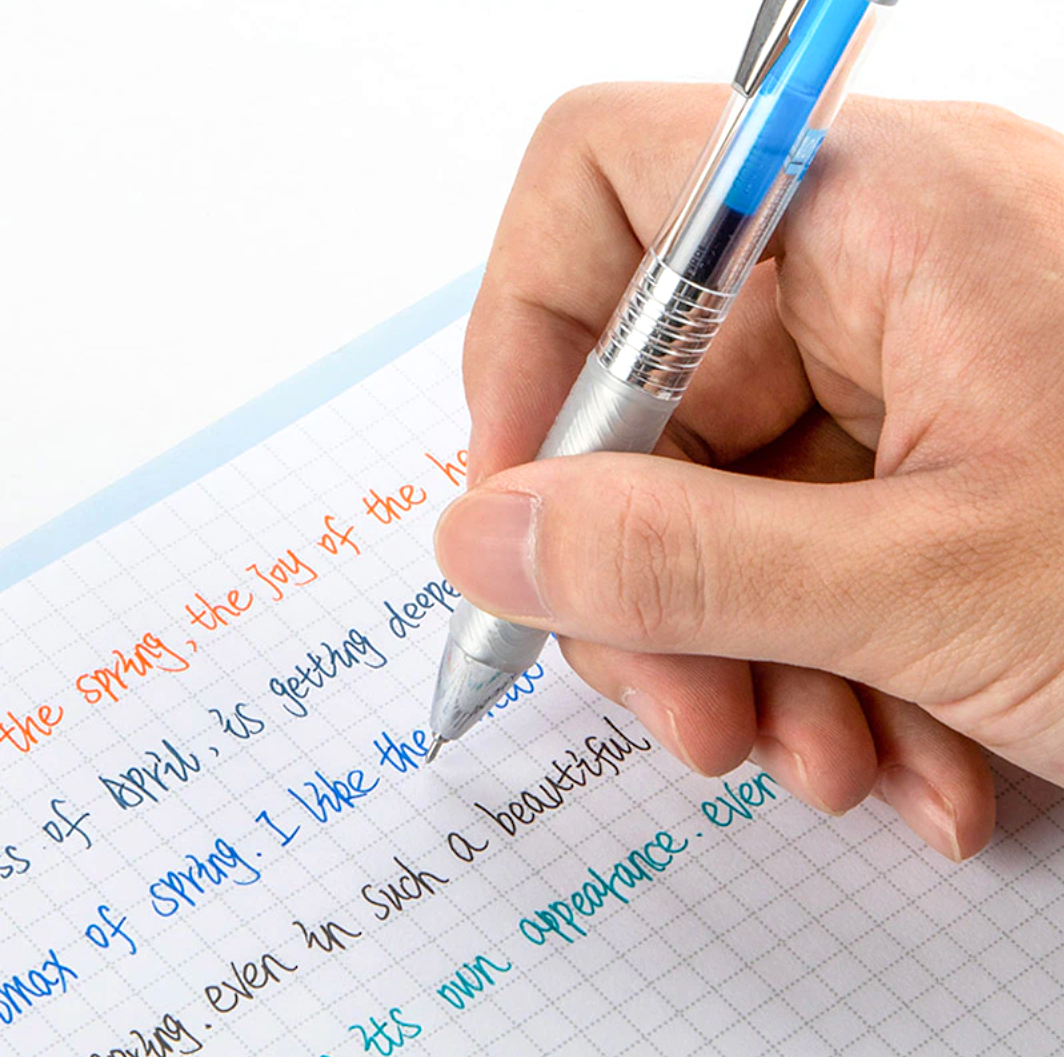 the spring, the joy of the he
ss of April, is getting deepe
omax of spring. I like the
spring. even in such a beautiful
its own appearance. ever